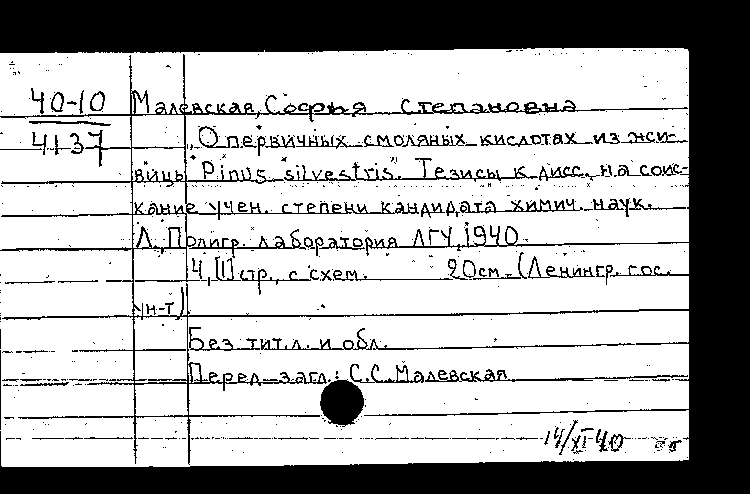 40-10
4137
Малевская, Софья Степановна
О первичных смоляных кислотах из жи-
вицы "Pinus silvestris". Тезисы к дисс. на соис-
кание учен. степени кандидата химич. наук.
Л., Полигр. лаборатория ЛГУ, 1940.
4, [1] стр., с схем. 20см. (Ленингр. гос.
ун-т)
Без тит. л. и обл.
Перед загл.: С.С. Малевская.
14/XI 40